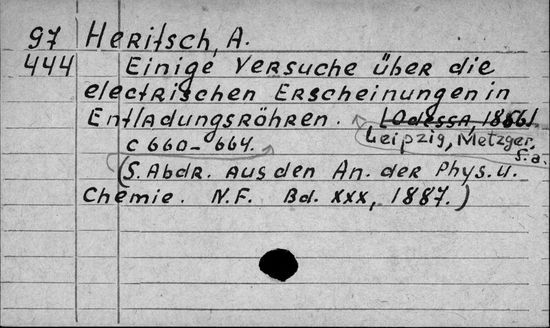 97 Heritsch, A.
444 Einige Versuche über die
electrischen Erscheinungen in
Entladungsröhren. [Odessa, 1886].
Leipzig, Metzger,
s.a.
c 660-664.
(S. Abdr. aus den An. der Phys. u.
Chemie. N.F. Bd. XXX, 1887.)